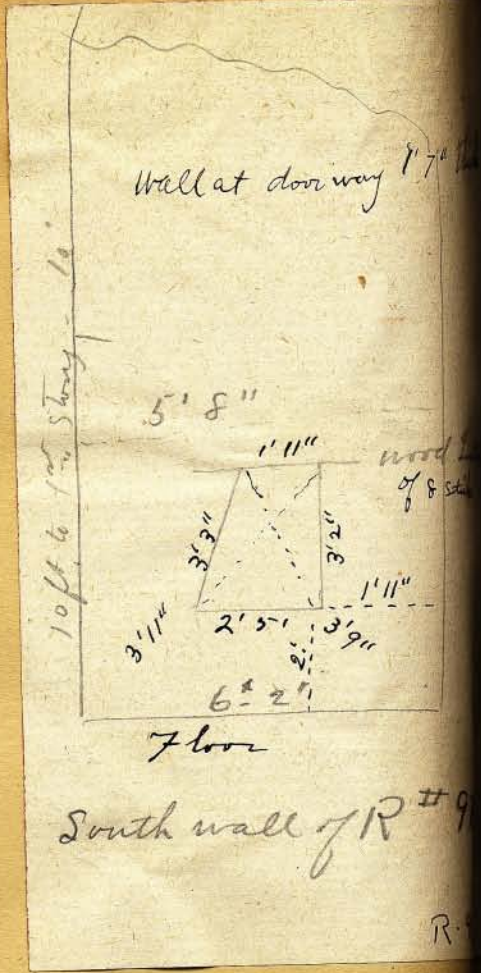 Wall at doorway 1' 7"
10 ft to 1st Story - 10"
5' 8"
1' 11"
wood
of 8
3' 3"
3' 2"
1' 11"
2' 5"
3' 11"
3' 9"
2'
6' 2"
Floor
South wall of R # 9
R.